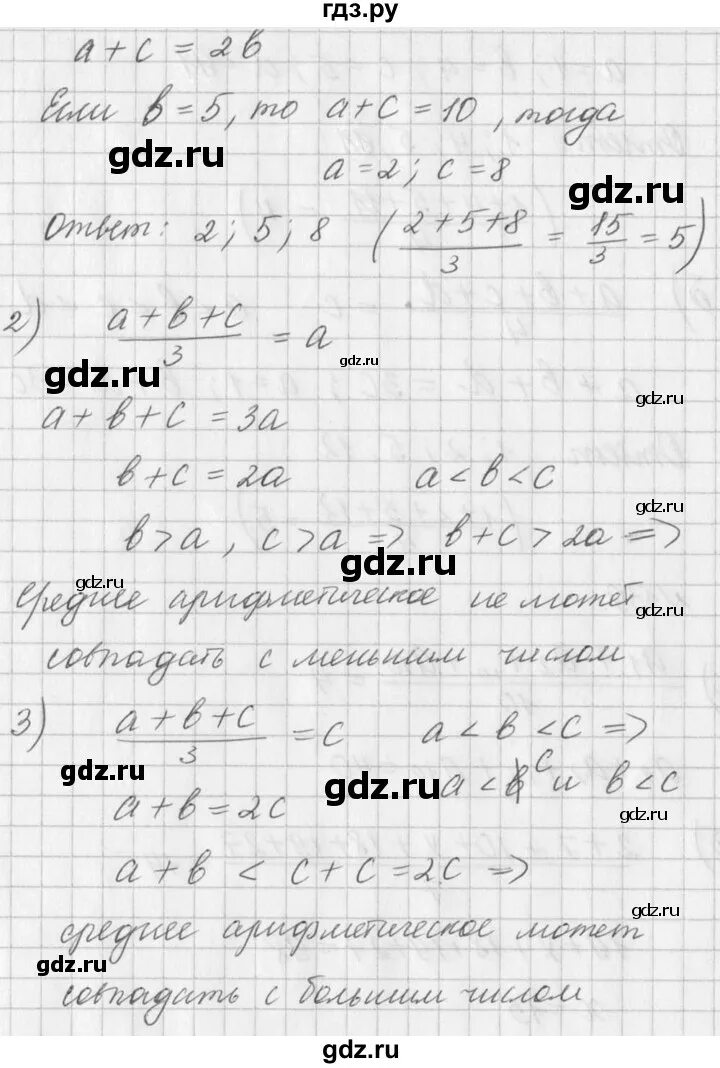 гдз.ру
a + c = 2в
Если в = 5, то a + c = 10, тогда
gdz.ru
a = 2; c = 8
gdz.ru
Ответ: 2; 5; 8 ( (2 + 5 + 8)/3 = 15/3 = 5 )
2) (a + в + c)/3 = a
gdz.ru
gdz.ru
gdz.ru
a + в + c = 3a
в + c = 2a a < в < c
gdz.ru
в > a, c > a => в + c > 2a =>
gdz.ru
gdz.ru
gdz.ru
среднее арифметическое не может
совпадать с меньшим числом
3) (a + в + c)/3 = c a < в < c =>
gdz.ru
gdz.ru
a < c и в < c
gdz.ru
a + в = 2c
a + в < c + c = 2c =>
gdz.ru
среднее арифметическое может
gdz.ru
совпадать с большим числом
gdz.ru